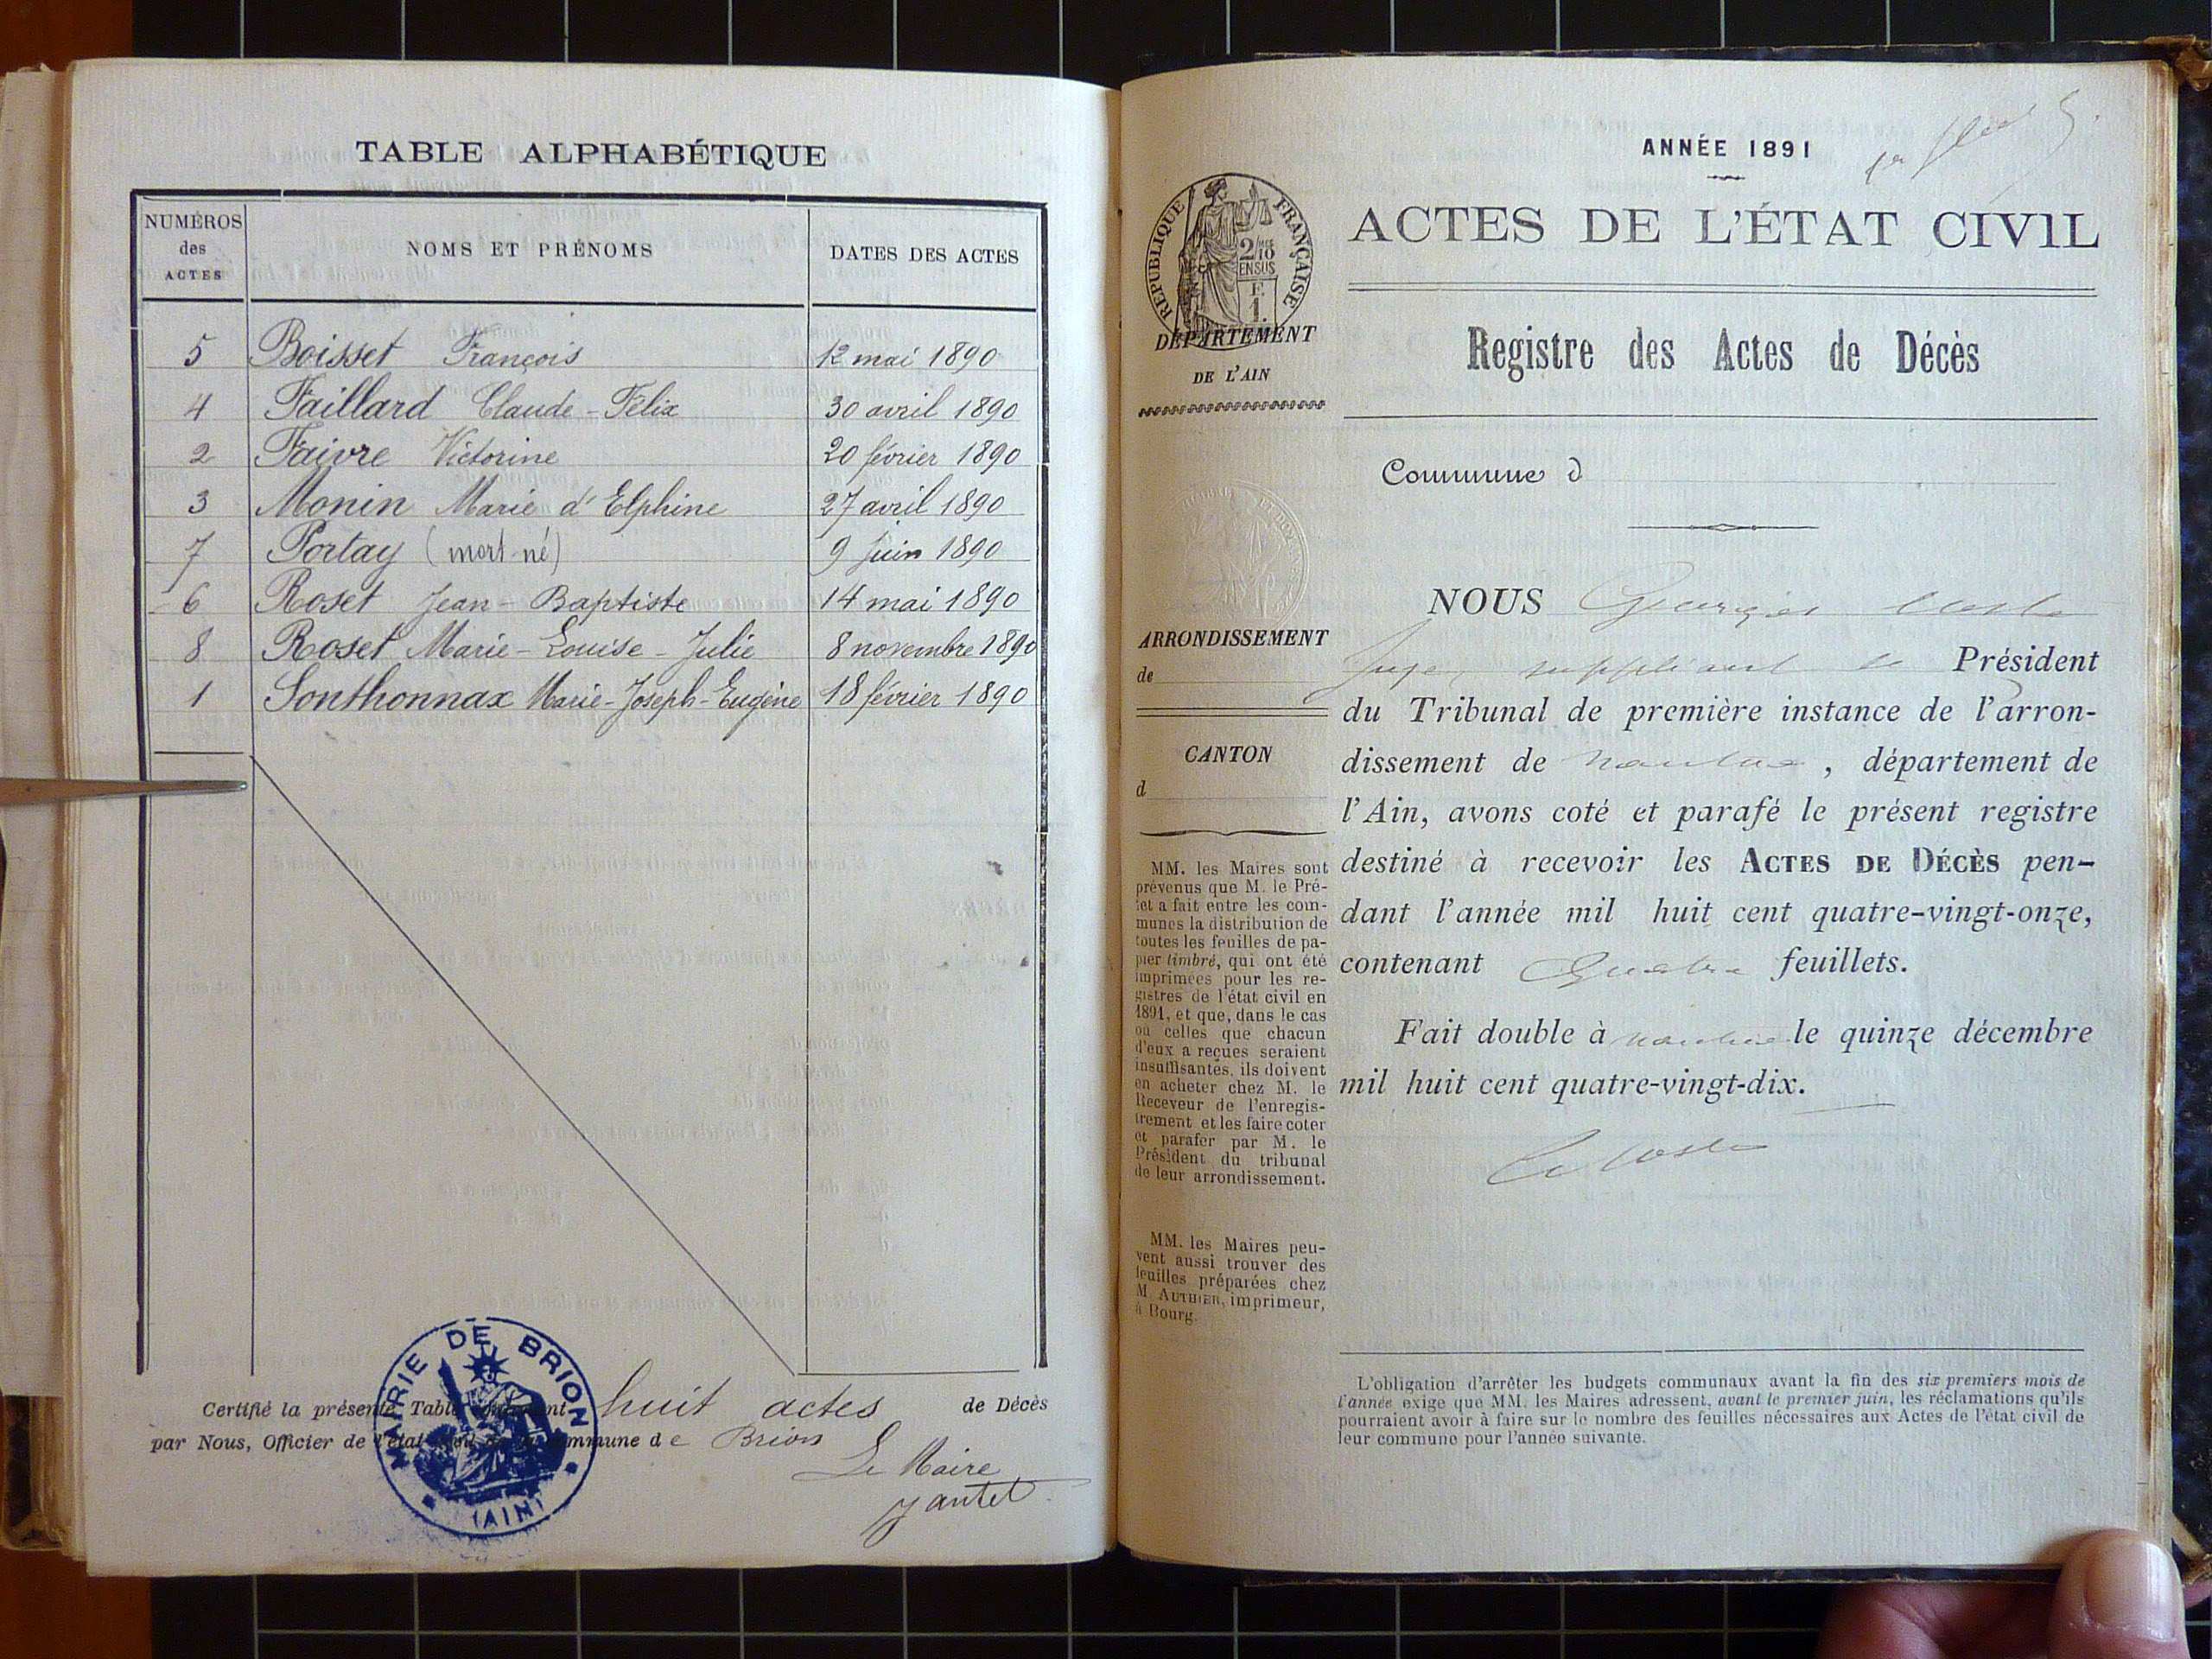 TABLE ALPHABÉTIQUE
NUMÉROS des ACTES NOMS ET PRÉNOMS DATES DES ACTES
5 Boisset François 12 mai 1890
4 Faillard Claude-Félix 30 avril 1890
2 Faivre Victorine 20 février 1890
3 Monin Marie d'Elphine 27 avril 1890
7 Portay (mort-né) 9 juin 1890
6 Roset Jean-Baptiste 14 mai 1890
8 Roset Marie-Louise-Julie 8 novembre 1890
1 Sonthonnax Marie-Joseph-Eugène 18 février 1890
Certifié la présente Table huit actes de Décès
par Nous, Officier de l'état commune de Brion
Le Maire
Jantet
MAIRIE DE BRION
(AIN)
ANNÉE 1891
ACTES DE L'ÉTAT CIVIL
RÉPUBLIQUE FRANÇAISE
2/10 EN SUS
F. 1.
DÉPARTEMENT
DE L'AIN
Registre des Actes de Décès
Commune d
NOUS Georges
ARRONDISSEMENT
de
Juge suppléant le Président
du Tribunal de première instance de l'arron-
dissement de Nantua, département de
l'Ain, avons coté et parafé le présent registre
destiné à recevoir les ACTES DE DÉCÈS pen-
dant l'année mil huit cent quatre-vingt-onze,
contenant Quatre feuillets.
Fait double à Nantua le quinze décembre
mil huit cent quatre-vingt-dix.
CANTON
d
MM. les Maires sont
prévenus que M. le Pré-
fet a fait entre les com-
munes la distribution de
toutes les feuilles de pa-
pier timbré, qui ont été
imprimées pour les re-
gistres de l'état civil en
1891, et que, dans le cas
où celles que chacun
d'eux a reçues seraient
insuffisantes, ils doivent
en acheter chez M. le
Receveur de l'enregis-
trement et les faire coter
et parafer par M. le
Président du tribunal
de leur arrondissement.
MM. les Maires peu-
vent aussi trouver des
feuilles préparées chez
M. AUTHIER, imprimeur,
à Bourg.
L'obligation d'arrêter les budgets communaux avant la fin des six premiers mois de
l'année exige que MM. les Maires adressent, avant le premier juin, les réclamations qu'ils
pourraient avoir à faire sur le nombre des feuilles nécessaires aux Actes de l'état civil de
leur commune pour l'année suivante.